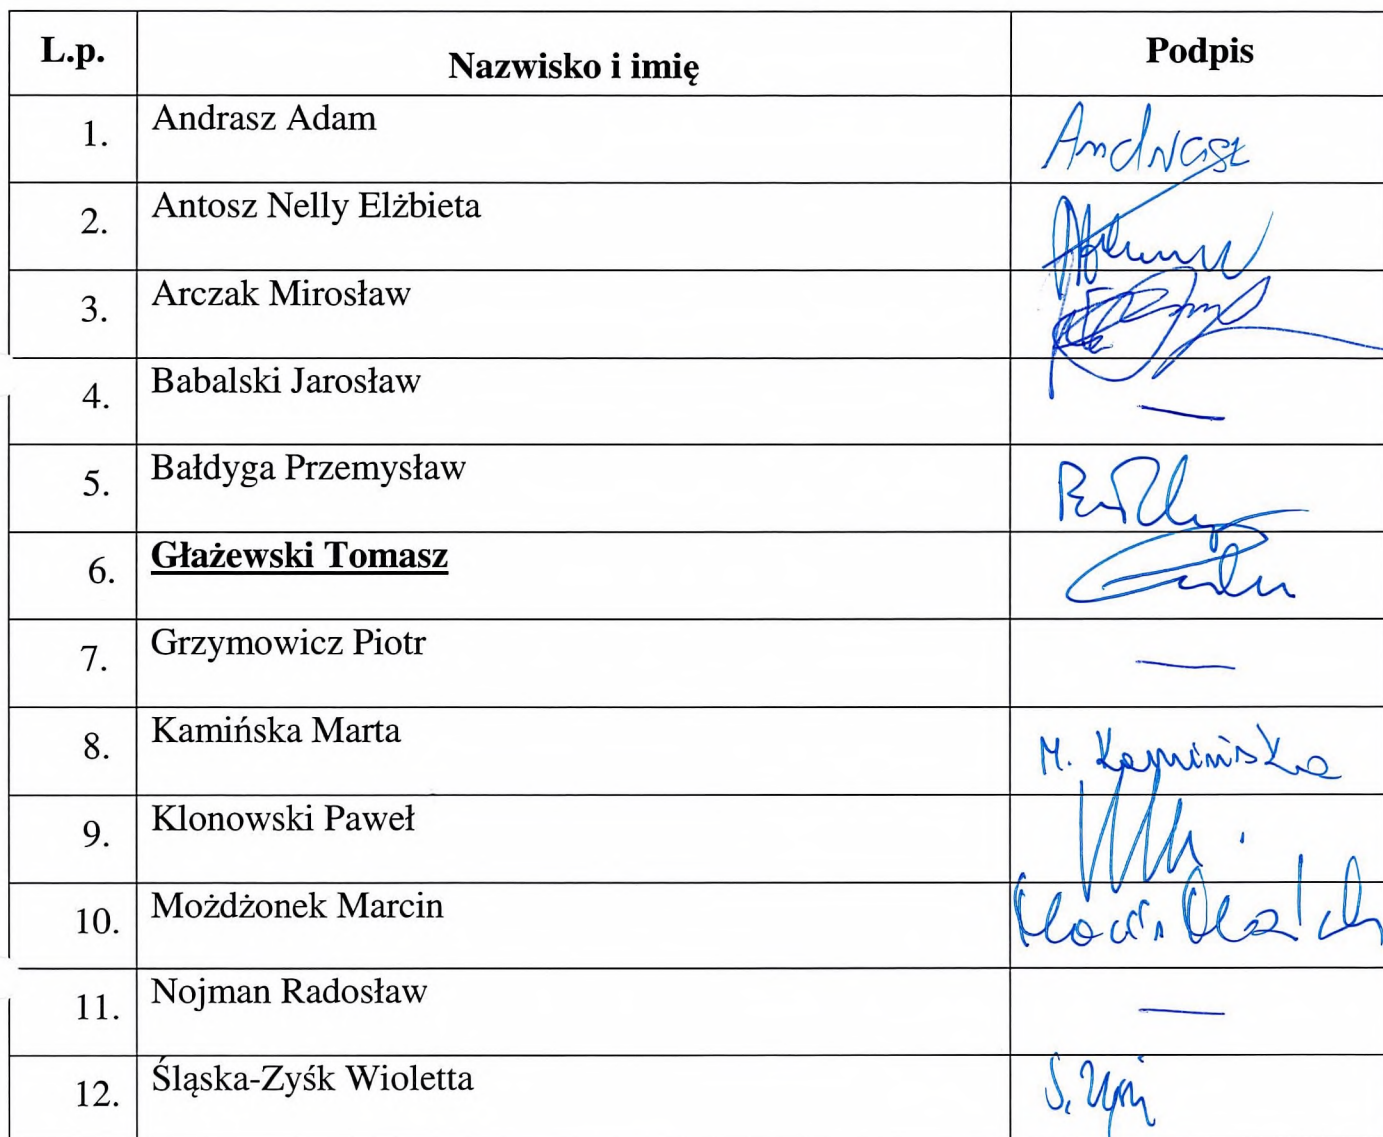 L.p. Nazwisko i imię Podpis
1. Andrasz Adam Andrasz
2. Antosz Nelly Elżbieta
3. Arczak Mirosław
4. Babalski Jarosław —
5. Bałdyga Przemysław
6. Głażewski Tomasz
7. Grzymowicz Piotr —
8. Kamińska Marta M. Kamińska
9. Klonowski Paweł
10. Możdżonek Marcin
11. Nojman Radosław —
12. Śląska-Zyśk Wioletta